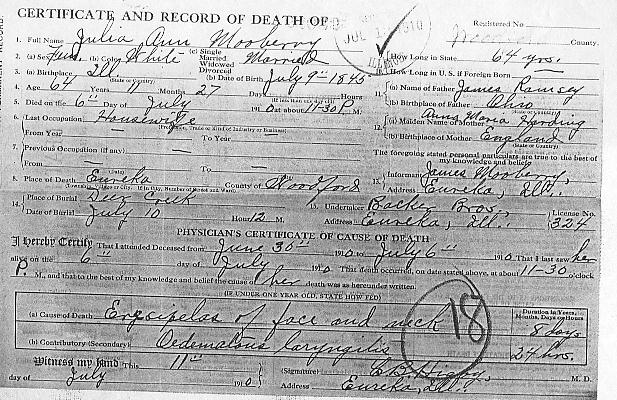 CERTIFICATE AND RECORD OF DEATH OF
Registered No
1. Full Name Julia Ann Mooberry County.
2. (a) Sex Fem. (b) Color White (c) Single Married Widowed Divorced Married How Long in State 64 yrs.
3. (a) Birthplace Ill (State or Country) (b) Date of Birth July 9th 1845 How Long in U. S. if Foreign Born
4. Age 64 Years 11 Months 27 Days Hours (If less than one day old) 11. (a) Name of Father James Ramsey
5. Died on the 6th Day of July 1910 at about 11-30 P. M. (b) Birthplace of Father Ohio (State or Country)
6. Last Occupation Housewife (Profession, Trade or Kind of Industry or Business) 12. (a) Maiden Name of Mother Anna Maria Harding
From Year — To Year — (b) Birthplace of Mother England (State or Country)
7. Previous Occupation (if any) — The foregoing stated personal particulars are true to the best of my knowledge and belief
From — To — 13. Informant James Mooberry,
8. Place of Death Eureka County of Woodford Address Eureka, Ill.
(Township, Village or City. If in City, Number of Street and Ward)
14. Place of Burial Deer Creek 15. Undertaker Backer Bros, License No.
Date of Burial July 10 Hour 12 M. Address Eureka, Ill. 324
PHYSICIAN'S CERTIFICATE OF CAUSE OF DEATH
I Hereby Certify That I attended Deceased from June 30th 1910 to July 6th 1910 That I last saw her
alive on the 6th day of July 1910 That death occurred, on date stated above, at about 11-30 o'clock
P. M., and that to the best of my knowledge and belief the cause of her death was as hereunder written.
(IF UNDER ONE YEAR OLD, STATE HOW FED)
Duration in Years, Months, Days or Hours
(a) Cause of Death Erysipelas of face and neck 8 days
(b) Contributory (Secondary) Oedematous laryngitis 24 hrs.
18
Witness my hand This 11th (Signature) C.B. Higby, M. D.
day of July 1910 Address Eureka, Ill.